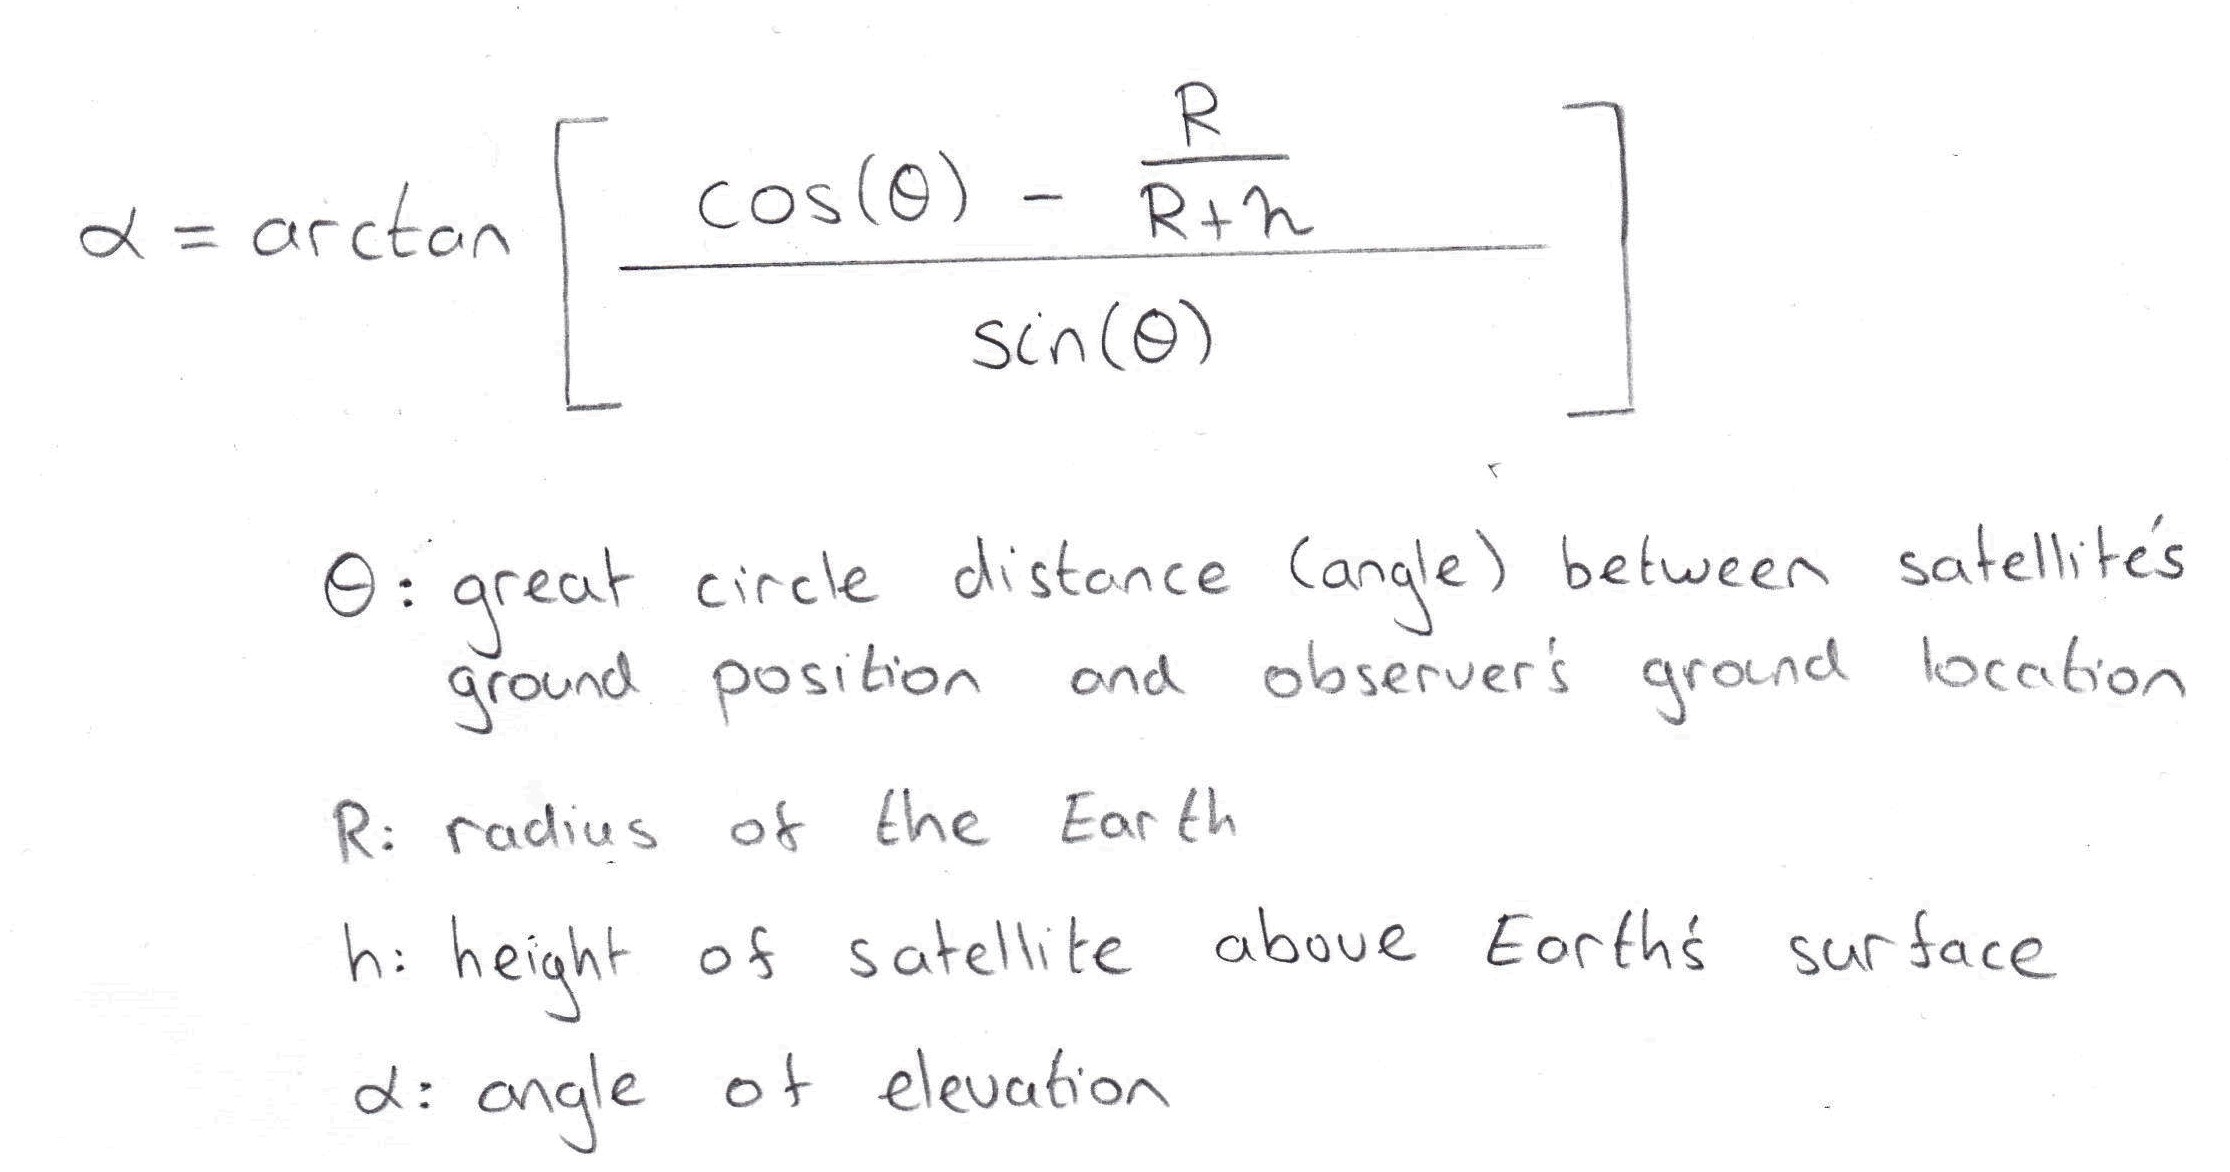 α = arctan [ (cos(θ) - R/(R+h)) / sin(θ) ]
θ: great circle distance (angle) between satellite's
ground position and observer's ground location
R: radius of the Earth
h: height of satellite above Earth's surface
α: angle of elevation